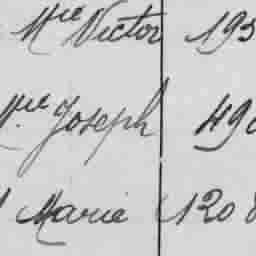 Mlle Victor 195
Mlle Joseph 490
Marie 120